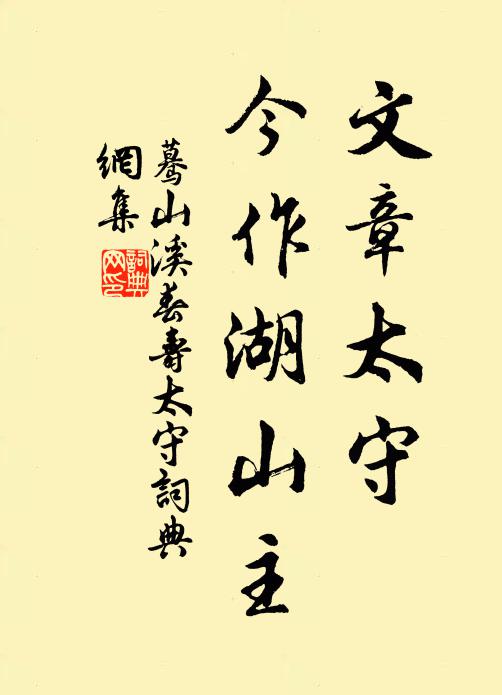 文章太守
今作湖山主
驀山溪春壽太守詞典
網集
詞典
网印